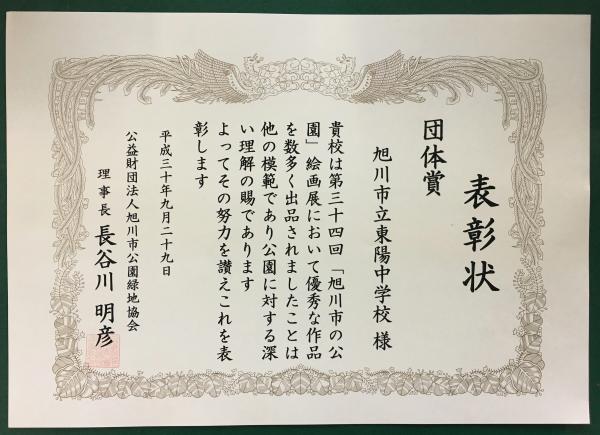 表彰状
団体賞
旭川市立東陽中学校 様
貴校は第三十四回「旭川市の公
園」絵画展において優秀な作品
を数多く出品されましたことは
他の模範であり公園に対する深
い理解の賜であります
よってその努力を讃えこれを表
彰します
平成三十年九月二十九日
公益財団法人旭川市公園緑地協会
理事長 長谷川 明彦